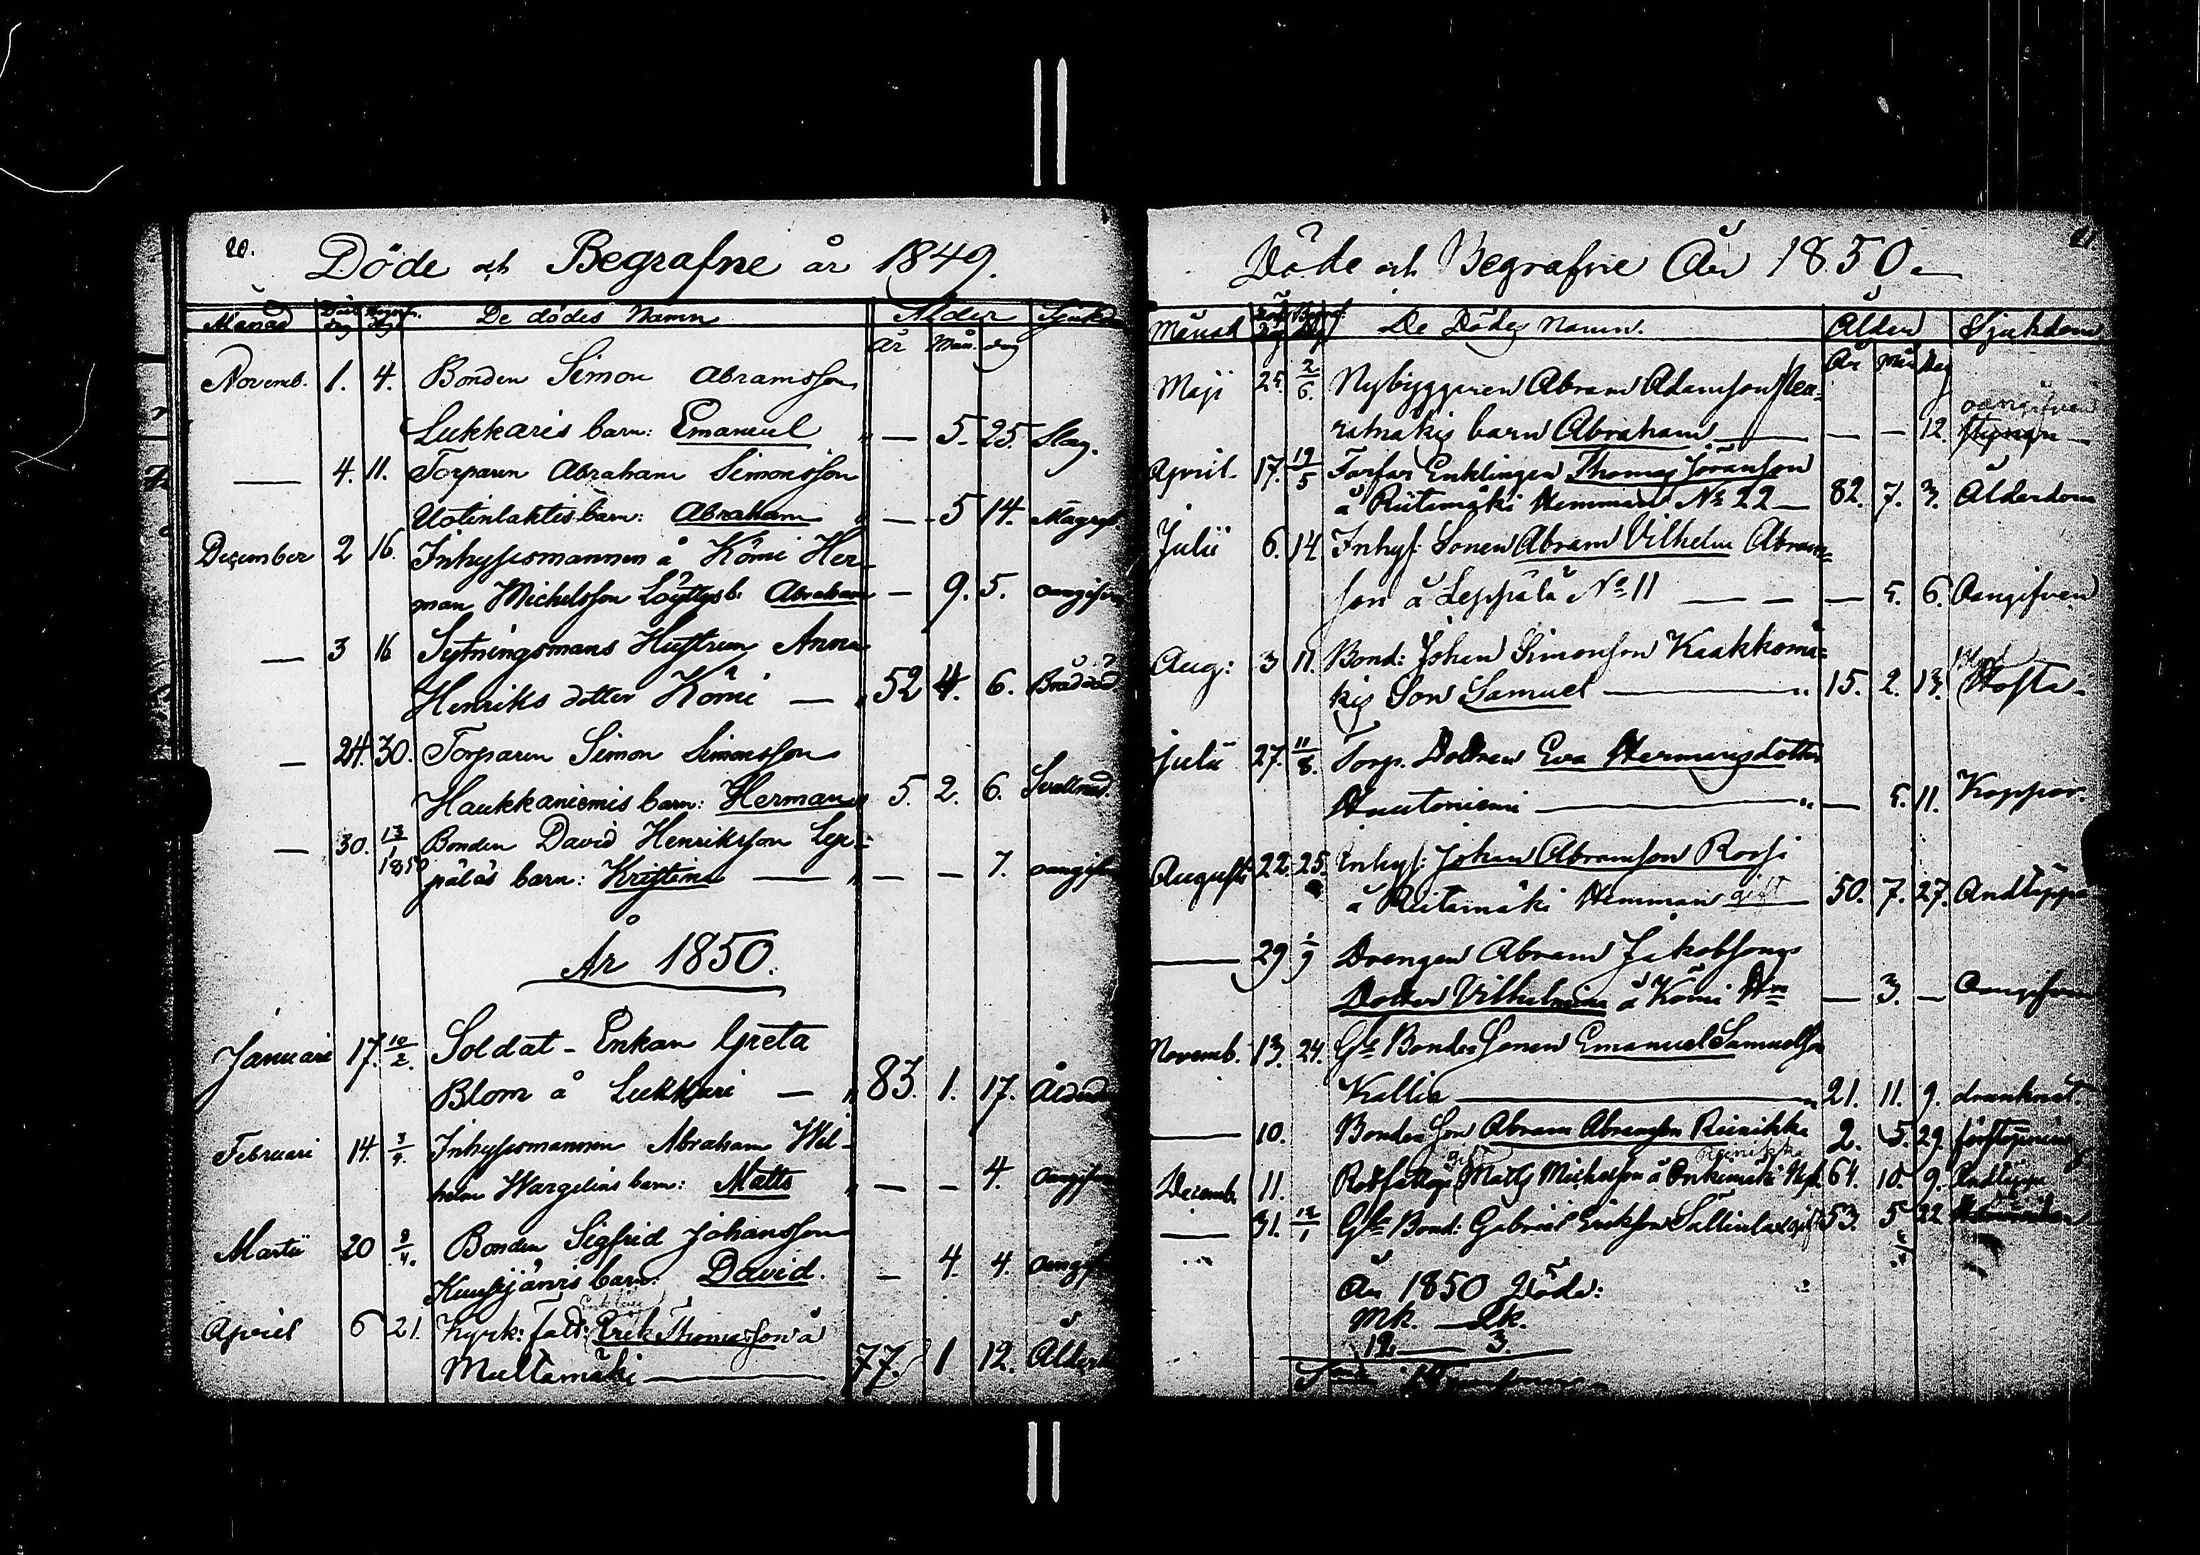 20.
Döde och Begrafne år 1849.
Månad Död dag Begr. dag De dödes Namn Ålder Sjukdom
År Mån. dag
Novemb. 1. 4. Bonden Simon Abramsson
Lukkaris barn: Emanuel " — 5. 25. Slag.
— 4. 11. Torparen Abraham Simonsson
Uotinlaktis barn: Abraham " — 5 14.
December 2 16. Inhysesmannen å Kömi Her-
man Michelsson Löyttys b. Abraham — 9. 5. oangifven
— 3 16 Sytningsmans Hustrun Anna
Henriks dotter Kömi — " 52 4. 6. Bråddöd
— 24. 30. Torparen Simon Simonsson
Haukkaniemis barn: Herman " 5. 2. 6.
— 30. 13/1 1850 Bonden David Henriksson Lep-
päläs barn: Kristina — " — — 7. oangifven
År 1850.
Januari 17. 10/2. Soldat-Enkan Greta
Blom å Lukkari — " 83. 1. 17. Ålderdom
Februari 14. 3/ Inhysesmannen Abraham Wil-
helm Wargelins barn: Matts " — — 4. oangifven
Martii 20 /4. Bonden Sigfrid Johansson
barn: David. — 4. 4. oangifven
April 6 21. Kyrk: fatt: Erik Thomasson å
Multamäki — 77. 1 12. Ålderd
21
Döde och Begrafne År 1850.
Månad Död Dag Begraf. Dg De Dödes Namn. Ålder Sjukdom
År Mån Dag
Maji 25. 2/6. Nybyggaren Abram Adamson
barn Abraham — — — 12. oangifven
April. 17. 19/5 Farfar Enklingen Thomas Jöranson
å Riitamäki Hemman No 22 — 82. 7. 3. Ålderdom
Julii 6. 14 Inhys: Sonen Abram Vilhelm Abram-
son å Leppälä No 11 — — — 5. 6. Oangifven
Aug: 3 11. Bond: Johan Simonson Kaakkomä-
kis Son Samuel — " 15. 2. 13. Hosta
Julii 27. 11/8. Torp. Dottren Eva Hermansdotter
— " — 5. 11. Koppor.
Augusti 22 25. Inhys: Johan Abramson Rossi
å Riitamäki Hemman gift 50. 7. 27. Andtäppa
— 29 1/9 Drengen Abram Jakobsons
Dotter Vilhelmina å Kömi Hn — 3. — Oangifven
Novemb. 13. 24. Gle Bonde Sonen Emanuel Samuelson
Kallia — " 21. 11. 9. drunknat.
— 10. Bonden Son Abram Abramson Reinikka 2. 5. 29. förstoppning
Decemb 11. Rotfattige Matts Michelson å 64. 10. 9. Andtäppa
gift Reinikka
— 31. 12/1 Gle Bond: Gabriel Erickson gift 53. 5 22
År 1850 Döde:
Mk. — Qk.
12 — 3